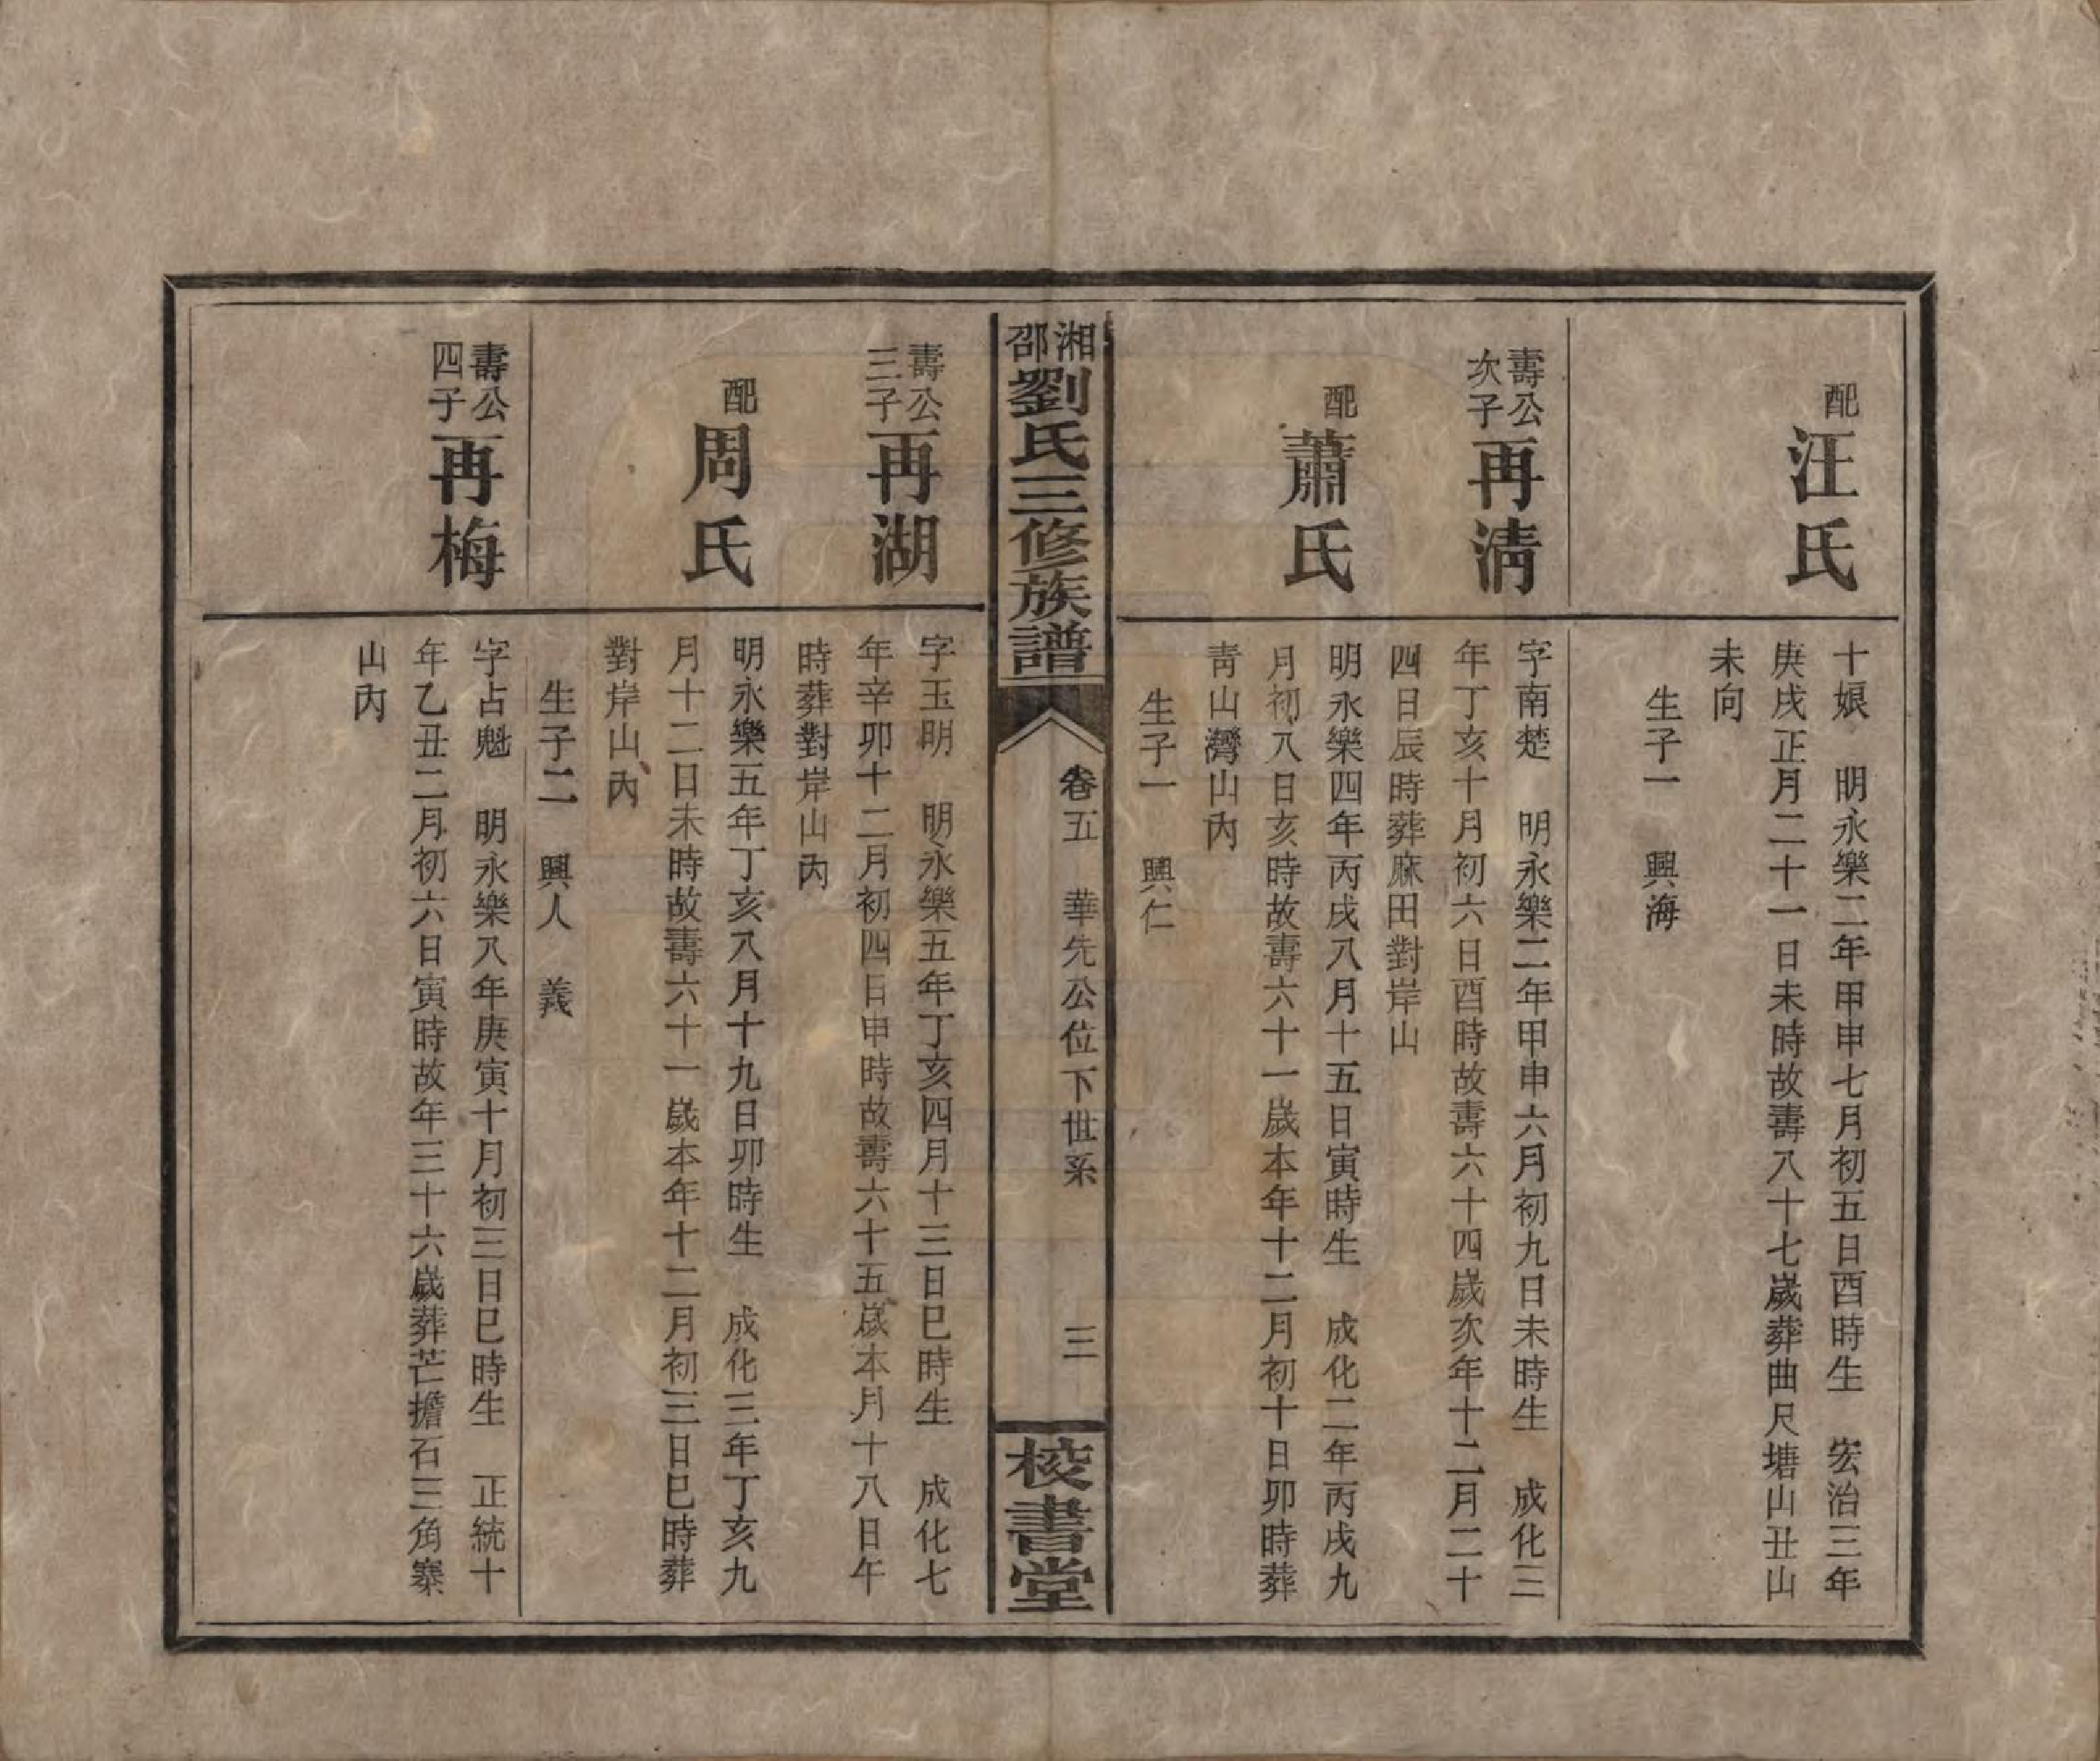 配
汪氏
十娘　明永樂二年甲申七月初五日酉時生　宏治三年
庚戌正月二十一日未時故壽八十七歲葬曲尺塘山丑山
未向
生子一　興海
壽公
次子
再淸
字南楚　明永樂二年甲申六月初九日未時生　成化三
年丁亥十月初六日酉時故壽六十四歲次年十二月二十
四日辰時葬麻田對岸山
配
蕭氏
明永樂四年丙戌八月十五日寅時生　成化二年丙戌九
月初八日亥時故壽六十一歲本年十二月初十日卯時葬
靑山灣山內
生子一　興仁
湘
邵
劉氏三修族譜
卷五　華先公位下世系　三
校書堂
壽公
三子
再湖
字玉明　明永樂五年丁亥四月十三日巳時生　成化七
年辛卯十二月初四日申時故壽六十五歲本月十八日午
時葬對岸山內
配
周氏
明永樂五年丁亥八月十九日卯時生　成化三年丁亥九
月十二日未時故壽六十一歲本年十二月初三日巳時葬
對岸山內
生子二　興人　義
壽公
四子
再梅
字占魁　明永樂八年庚寅十月初三日巳時生　正統十
年乙丑二月初六日寅時故年三十六歲葬芒擔石三角寨
山內